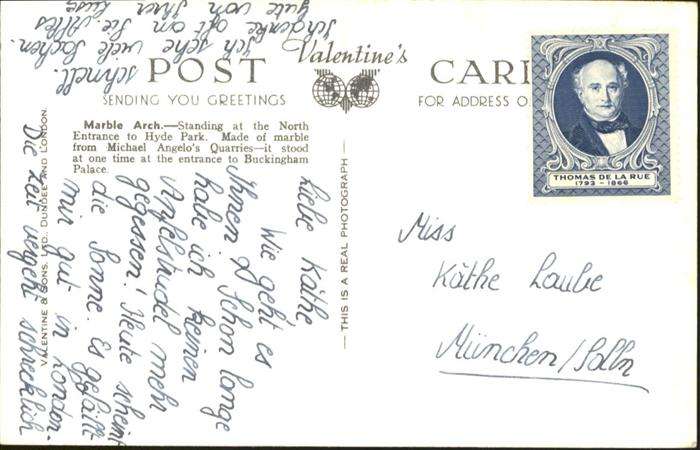 Valentine's
POST CARD
SENDING YOU GREETINGS
FOR ADDRESS O
Marble Arch.—Standing at the North
Entrance to Hyde Park. Made of marble
from Michael Angelo's Quarries—it stood
at one time at the entrance to Buckingham
Palace.
VALENTINE & SONS, LTD., DUNDEE AND LONDON.
— THIS IS A REAL PHOTOGRAPH —
THOMAS DE LA RUE
1793 - 1866
Liebe Käthe
Wie geht's
Ihnen? Schon lange
habe ich keinen
Apfelstrudel mehr
gegessen! Heute scheint
die Sonne. Es gefällt
mir gut in London.
Die Zeit vergeht schrecklich
schnell.
Ich sehe viele Sachen.
Ich denke oft an Sie. Alles
gute von Ihrer
Miss
Käthe Laube
München/Solln